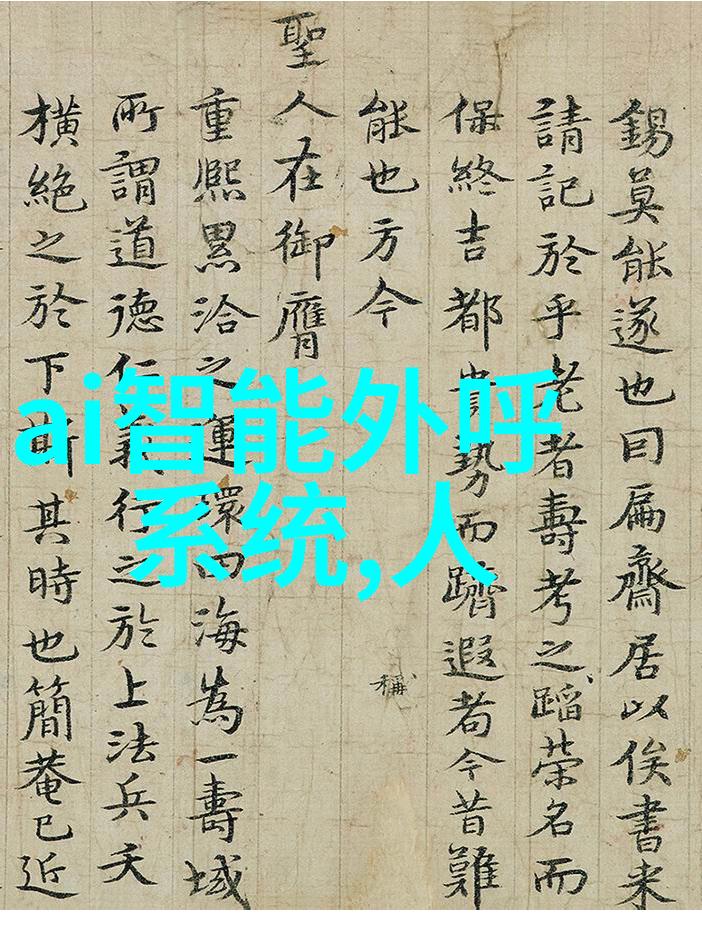 錫莫能遂也曰扁齋居以俟書来
請記於乎老者壽考之蹈榮名而
保終吉都貴勢而躋遐者今昔難
能也方今
稱
聖人在御膺
重熈累洽之運環四海為一壽域
所謂道德仁義行之於上法兵夭
橫絶之於下斯其時也簡菴已近
ai智能外呼
系统,人